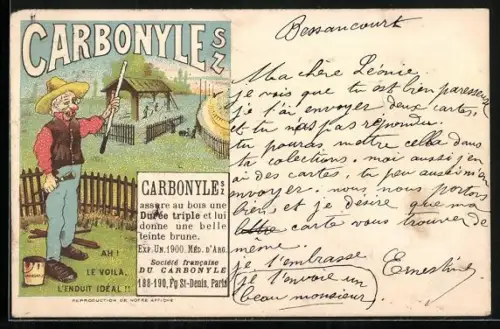 CARBONYLE SZ
CARBONYLE SZ
assure au bois une
Durée triple et lui
donne une belle
teinte brune.
EXP. UN. 1900. MÉD. D'ARG.
Société française
DU CARBONYLE
188-190, Fg St-Denis, Paris
AH!
LE VOILÀ,
L'ENDUIT IDÉAL!!
REPRODUCTION DE NOTRE AFFICHE
Bessancourt
Ma chère Léonie
je vois que tu est bien paresseuse
je t'ai envoyer deux cartes,
et tu n'as pas répondu.
tu pouras mettre cella dans
ta colections. moi aussi j'en
ai des cartes, tu peu aussi m'en
envoyer. nous nous portons
bien, et je desire que ma
carte vous trouver de
même.
je t'embrasse
Ernestine
je t'envoie un
beau monsieur